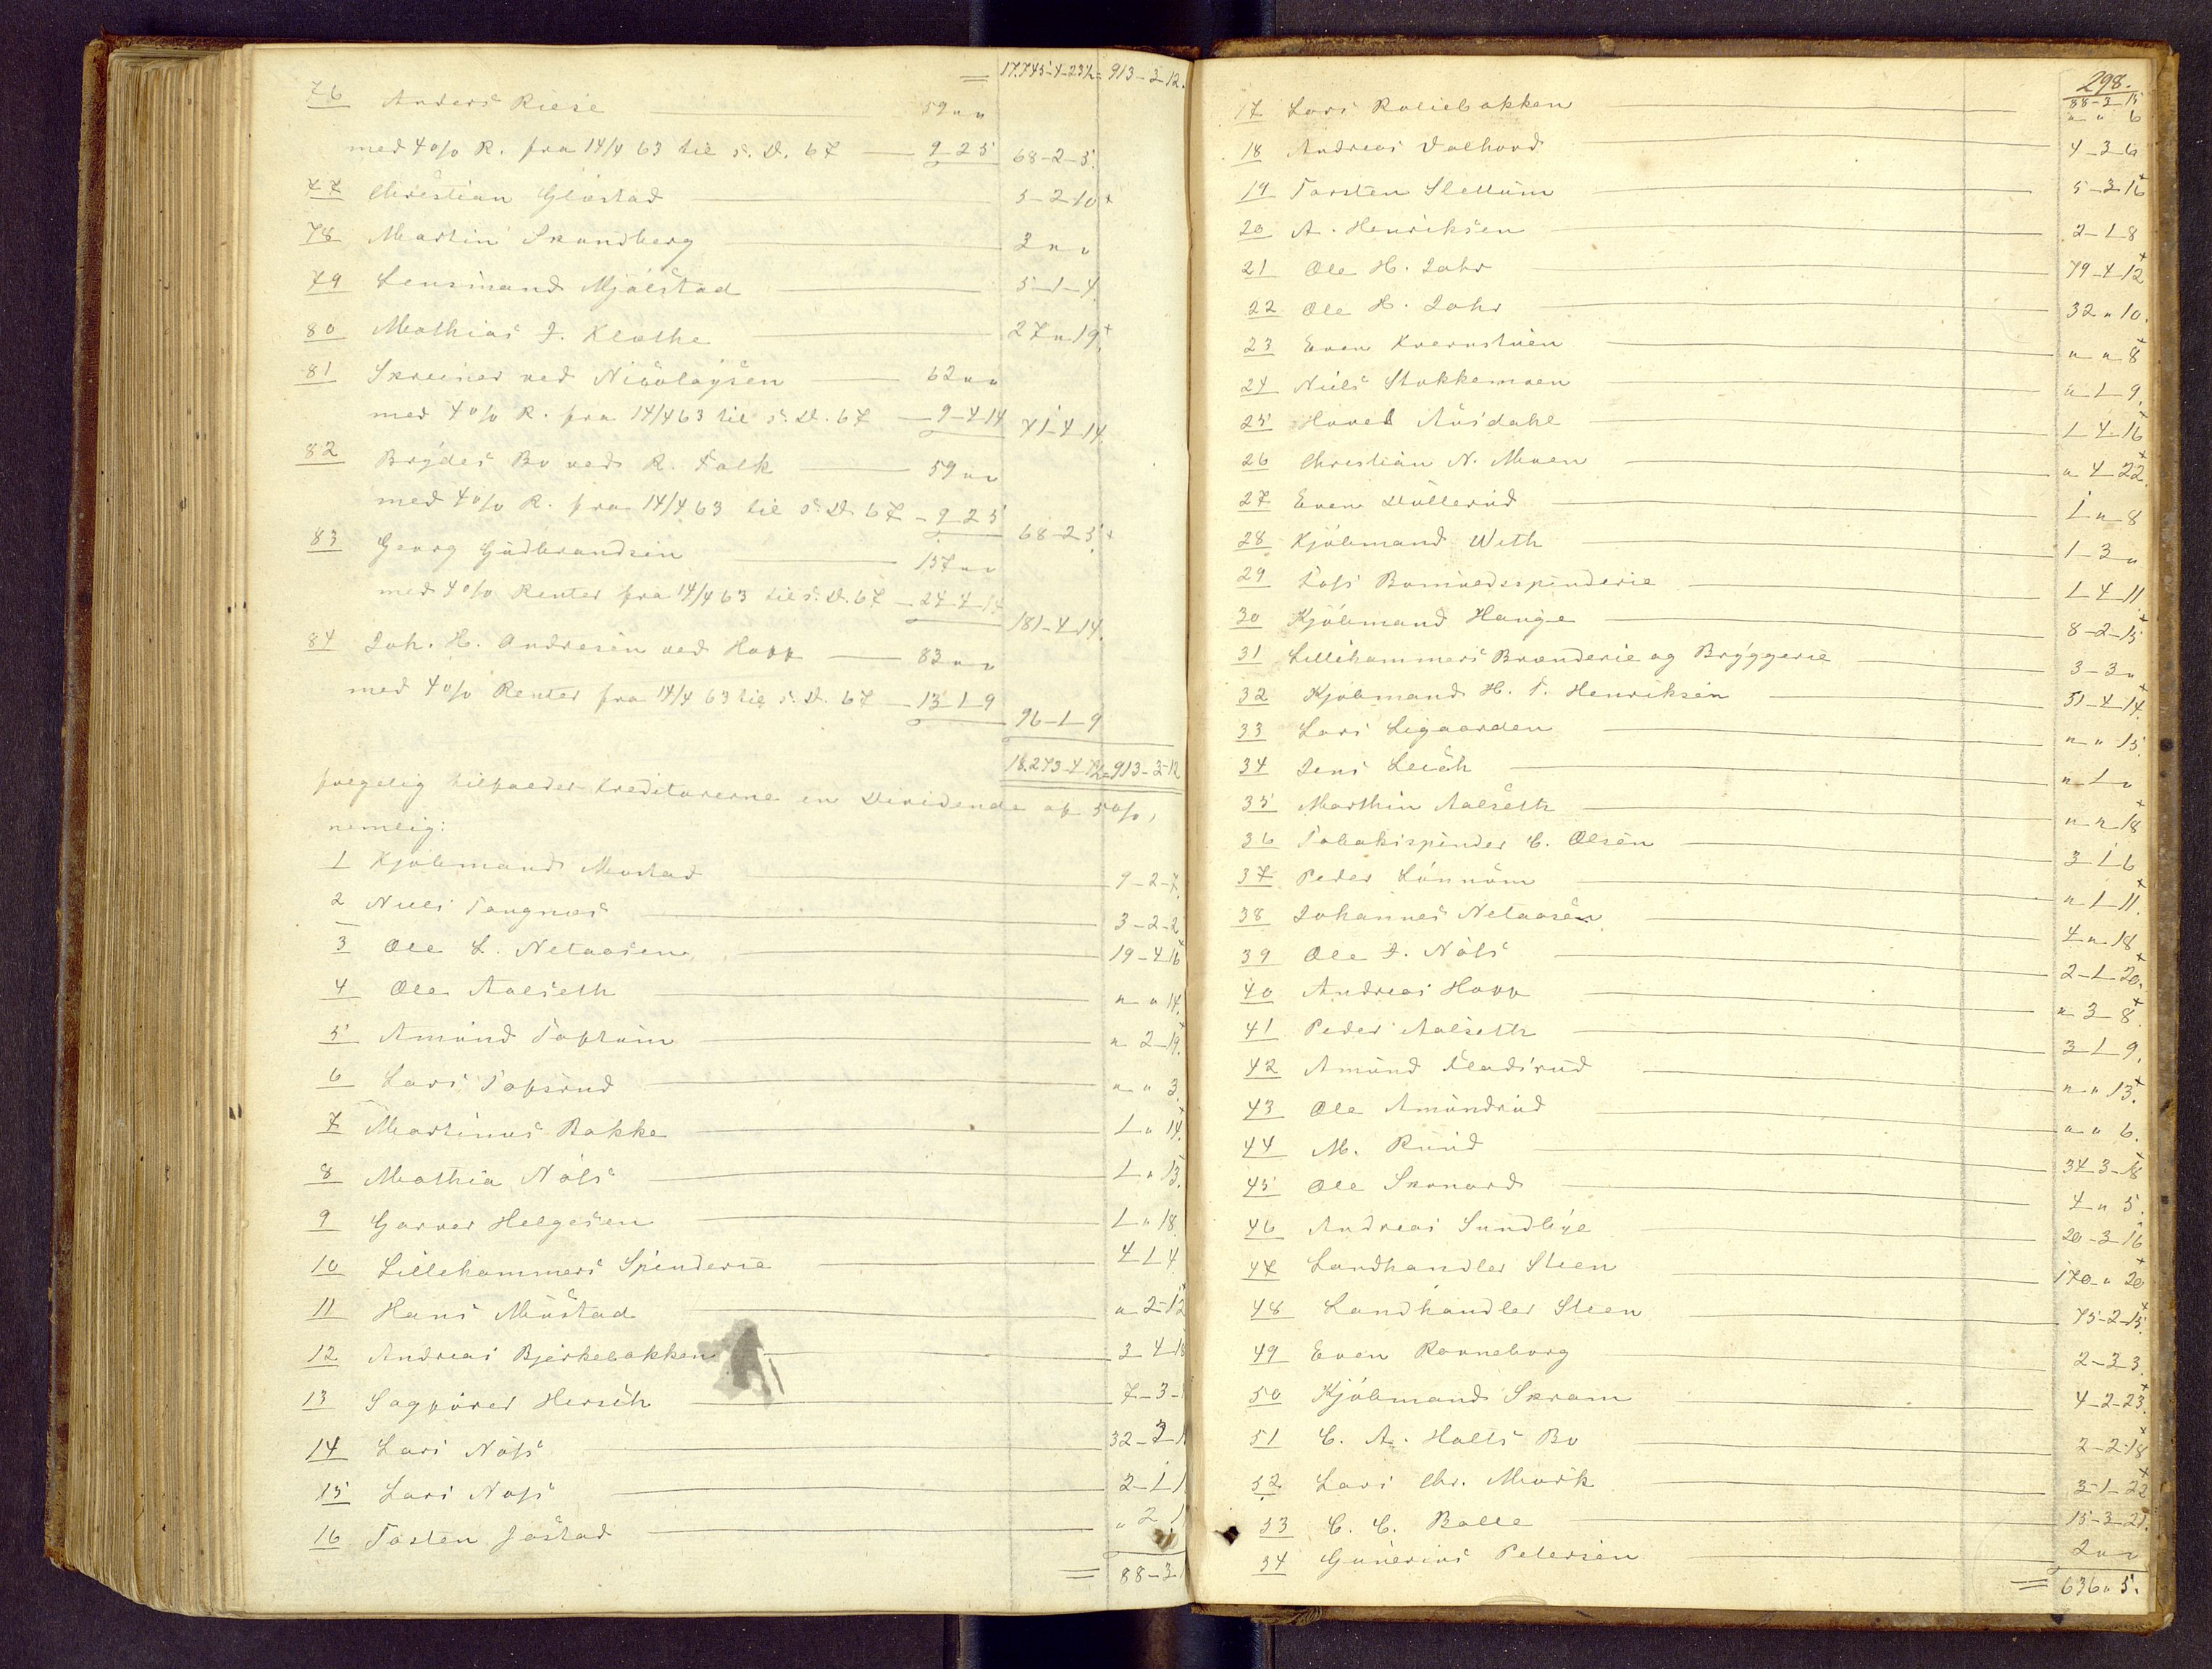 = 17.745-4-23½ = 913-3-12.
76 Anders Riese 59 " "
med 4 o/o R. fra 14/4 63 til s. D. 67 9-2-5 68-2-5.
77 Christian Glöstad 5-2-10
78 Martin Skundberg 3 " "
79 Lensmand Mjölstad 5-1-4.
80 Mathias J. Kløthe 27 " 19.
81 Skreiner ved Nicolaysen 62 " "
med 4 o/o R. fra 14/4 63 til s. D. 67 9-4-14 71-4-14
82 Brydes Bo ved R. Falk 59 " "
med 4 o/o R. fra 14/4 63 til s. D. 67 9-2-5 68-2-5
83 Georg Gudbrandsen 157 " "
med 4 o/o Renter fra 14/4 63 til s. D. 67 24-4-14 181-4-14.
84 Joh. H. Andresen ved Hopp 83 " "
med 4 o/o Renter fra 14/4 63 til s. D. 67 13-1-9 96-1-9
18.273-4-½ = 913-3-12
følgelig tilfalder Kreditorerne en Dividende af 5 o/o,
nemlig:
1 Kjøbmand Mustad 9-2-7.
2 Niels Tangnæs 3-2-2
3 Ole L. Netaasen 19-4-16
4 Ole Aalseth " " 14.
5 Amund Toftum " 2-19.
6 Lars Tofsrud " " 3.
7 Martinus Bakke 1 " 14.
8 Mathia Nöss 1 " 13.
9 Garver Helgesen 1 " 18
10 Lillehammers Spinderie 4-1-4
11 Hans Mustad " 2-12
12 Andreas Bjerkebakken 3-4-18
13 Sagfører Hersch 7-3-
14 Lars Nöss 32-3-1
15 Lars Nöss 2-1-1
16 Tosten Jostad " 2-1
= 88-3-
298.
88-3-15
17 Lars Roliebakken " " 6
18 Andreas Dalhoud 4-3-6
19 Torsten Slettum 5-3-16
20 A. Henriksen 2-1-8
21 Ole H. Lohr 79-4-12
22 Ole H. Lohr 32 " 10.
23 Even Kvernstuen " " 8
24 Niels Stokkemoen " 1-9.
25 Hovel Ausdahl 1-4-16
26 Christian N. Moen " 4-22.
27 Even Dullerud 1 " 8
28 Kjøbmand Weth 1-3 "
29 Foss Bomuldsspinderie 1-4-11.
30 Kjøbmand Hauge 8-2-15
31 Lillehammers Brænderie og Bryggerie 3-3 "
32 Kjøbmand H. T. Henriksen 51-4-14.
33 Lars Ligaarden " " 15.
34 Jens Leich " 1 "
35 Marthin Aalseth " " 18
36 Tobakspinder C. Olsen 3-1-6
37 Peder Lunnum " 1-11.
38 Johannes Netaasen 4 " 18
39 Ole J. Nöss 2-1-20.
40 Andreas Hopp " 3-8.
41 Peder Aalseth 3-1-9.
42 Amund Fladsrud " " 13.
43 Ole Amundrud " " 6.
44 M. Ruud 34-3-18
45 Ole Skonord 4 " 5.
46 Andreas Sundbye 20-3-16
47 Landhandler Steen 170 " 20
48 Landhandler Steen 75-2-15.
49 Even Ronneborg 2-3-3.
50 Kjøbmand Skram 4-2-23.
51 C. A. Holts Bo 2-2-18
52 Lars Chr. Mork 3-1-22
53 C. C. Balle 15-3-21.
54 Gunerius Petersen 2 " "
= 636 " 5.